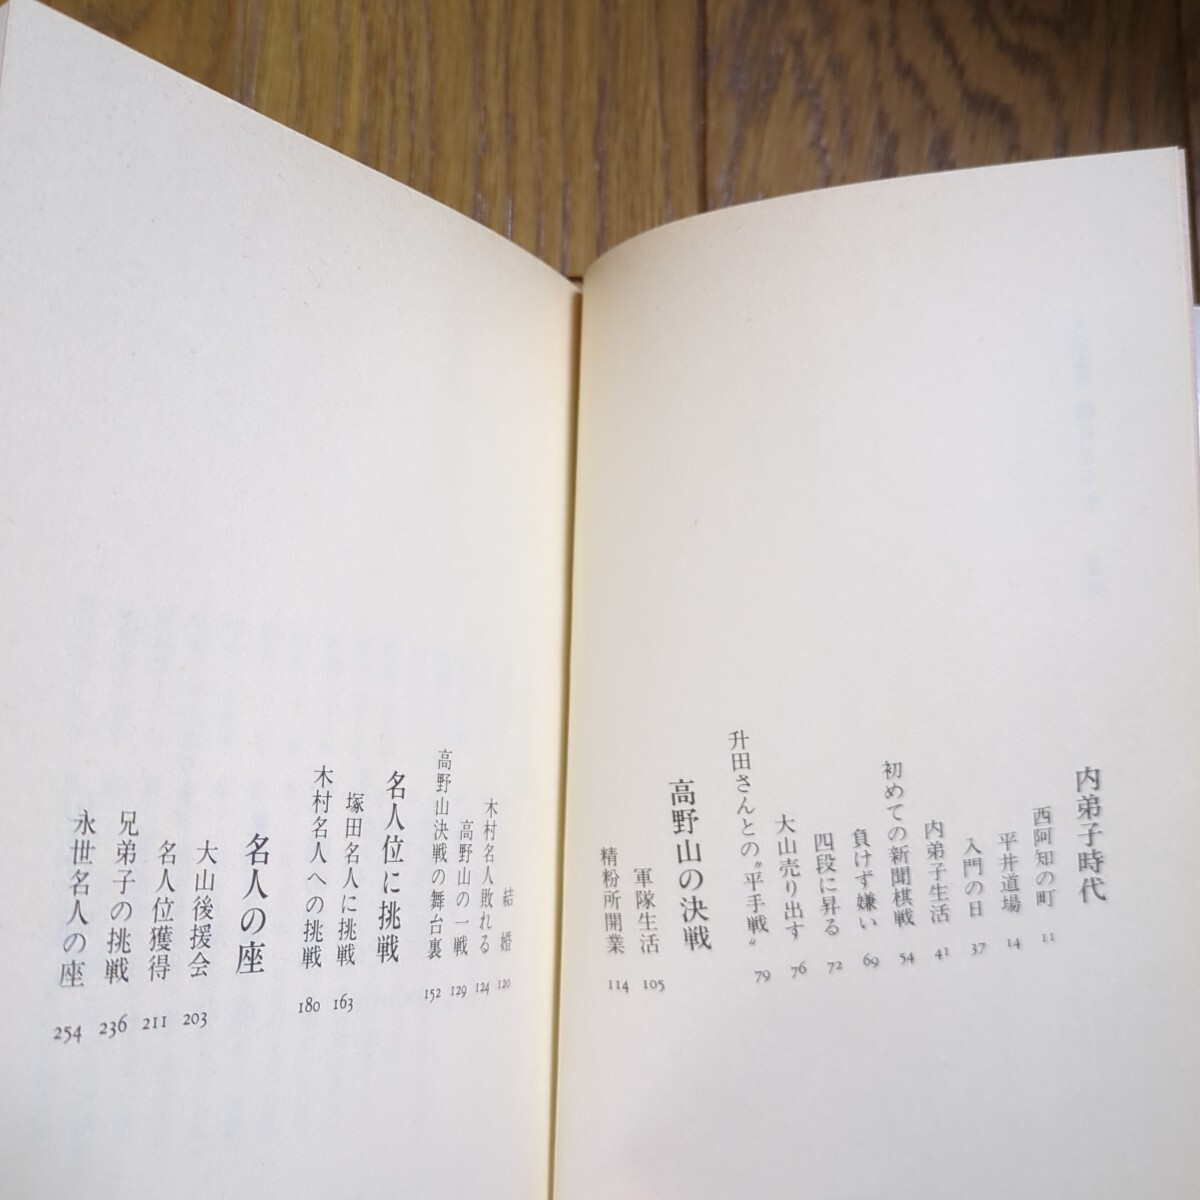 内弟子時代
西阿知の町 11
平井道場 14
入門の日 37
内弟子生活 41
初めての新聞棋戦 54
負けず嫌い 69
四段に昇る 72
大山売り出す 76
升田さんとの〝平手戦〟 79
高野山の決戦
軍隊生活 105
精粉所開業 114
結婚 120
木村名人敗れる 124
高野山の一戦 129
高野山決戦の舞台裏 152
名人位に挑戦
塚田名人に挑戦 163
木村名人への挑戦 180
名人の座
大山後援会 203
名人位獲得 211
兄弟子の挑戦 236
永世名人の座 254